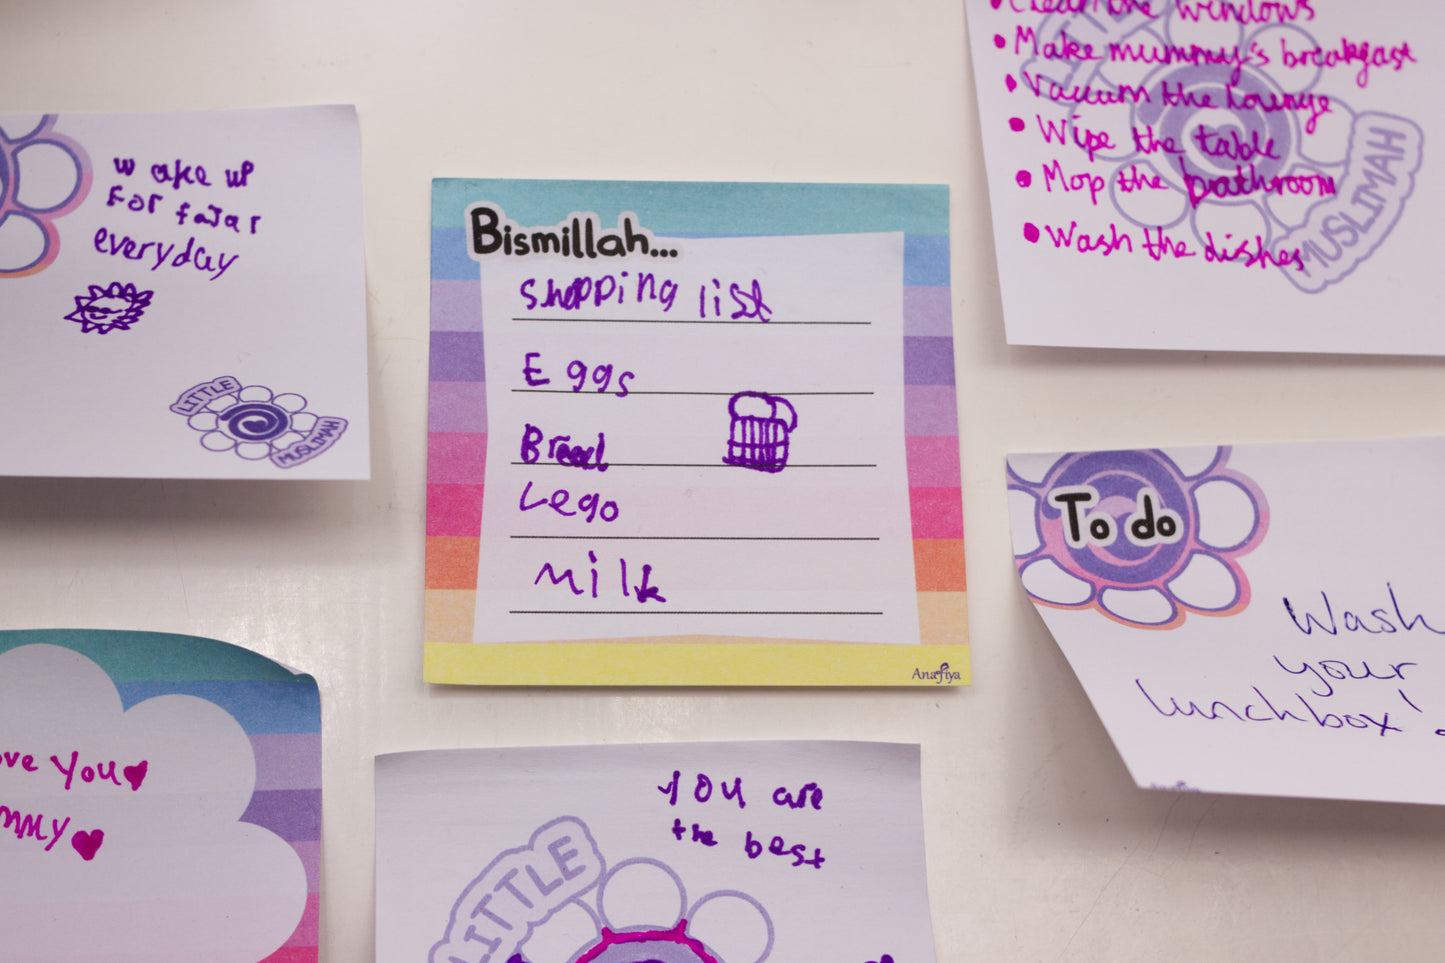 wake up
For fajar
everyday
LITTLE
MUSLIMAH
Bismillah...
Shopping list
Eggs
Bread
Lego
Milk
Anafiya
Clean the windows
• Make mummy's breakfast
• Vacuum the lounge
• Wipe the table
• Mop the bathroom
• Wash the dishes
MUSLIMAH
To do
Wash
your
lunchbox!
ove You
mmy
You are
the best
LITTLE